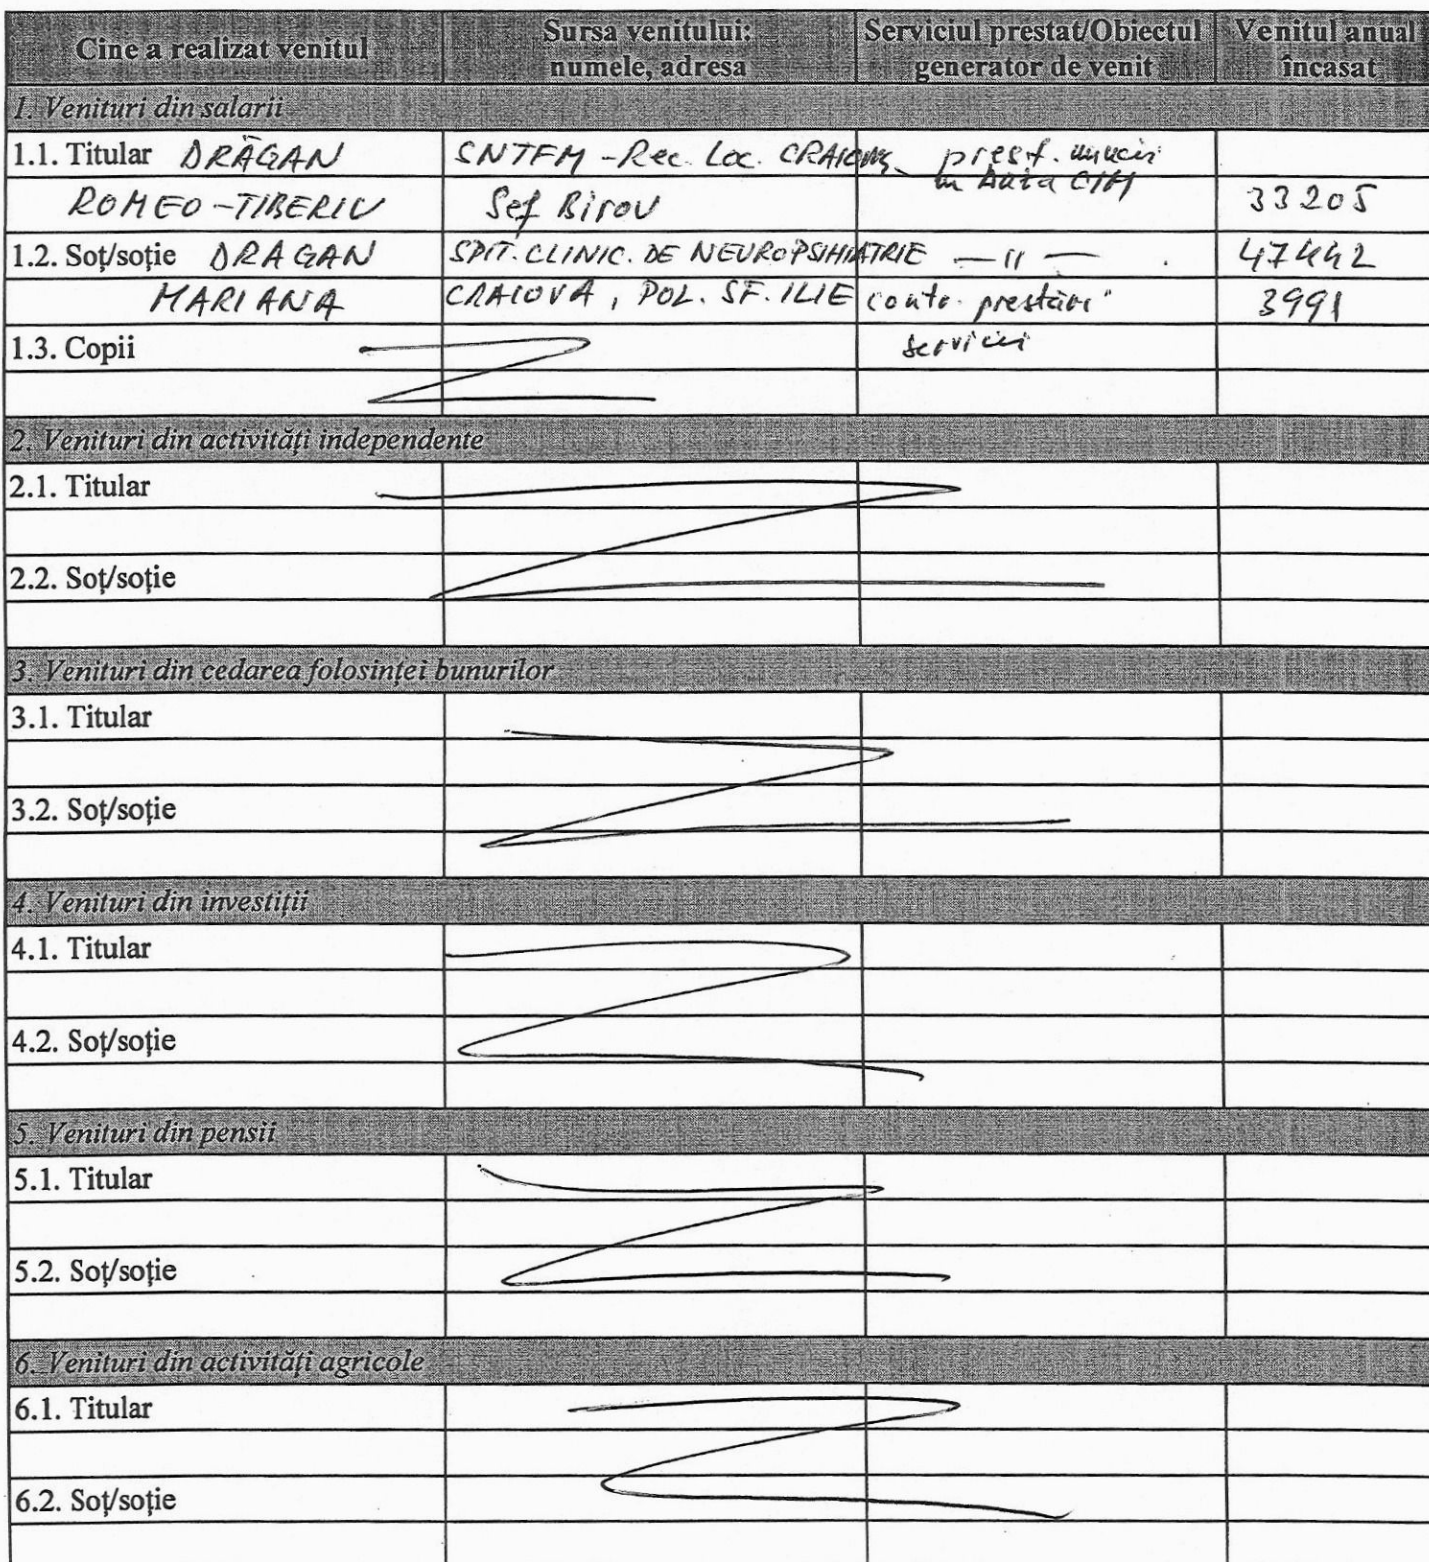 Cine a realizat venitul Sursa venitului: numele, adresa Serviciul prestat/Obiectul generator de venit Venitul anual încasat
1. Venituri din salarii
1.1. Titular DRĂGAN SNTFM - Rec. Loc. CRAIOVA prest. muncii
în baza CIM
ROMEO-TIBERIU Șef Birou 33205
1.2. Soț/soție DRAGAN SPIT. CLINIC. DE NEUROPSIHIATRIE — 11 — 47442
MARIANA CRAIOVA, POL. SF. ILIE contr. prestări 3991
1.3. Copii servicii
2. Venituri din activități independente
2.1. Titular
2.2. Soț/soție
3. Venituri din cedarea folosinței bunurilor
3.1. Titular
3.2. Soț/soție
4. Venituri din investiții
4.1. Titular
4.2. Soț/soție
5. Venituri din pensii
5.1. Titular
5.2. Soț/soție
6. Venituri din activități agricole
6.1. Titular
6.2. Soț/soție